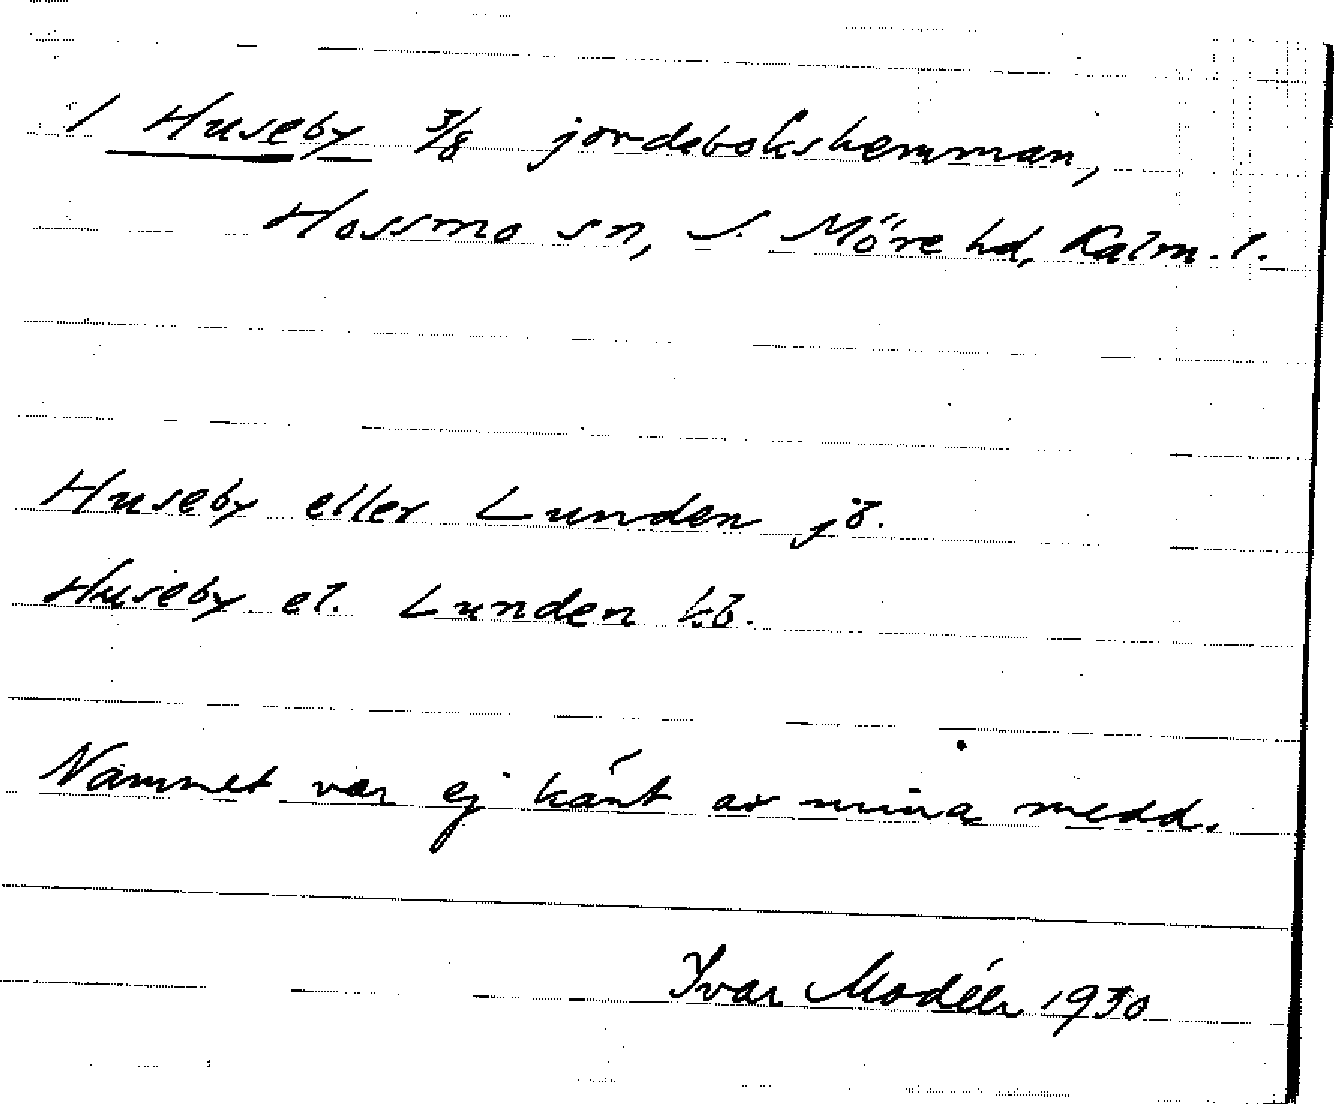 1 Huseby 3/8 jordebokshemman,
Hossmo sn, S. Möre hd, Kalm. l.
Huseby eller Lunden jb.
Huseby el. Lunden kb.
Namnet var ej känt av mina medd.
Ivar Modéer 1930